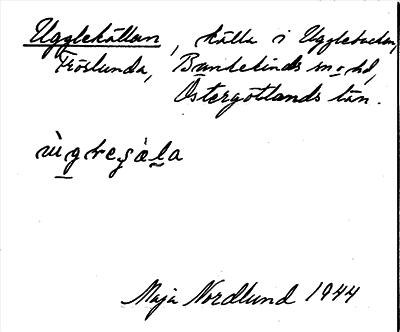 Ugglekällan, källa i Ugglebacken,
Fröslunda, Bankekinds sn o hd,
Östergötlands län.
Maja Nordlund 1944